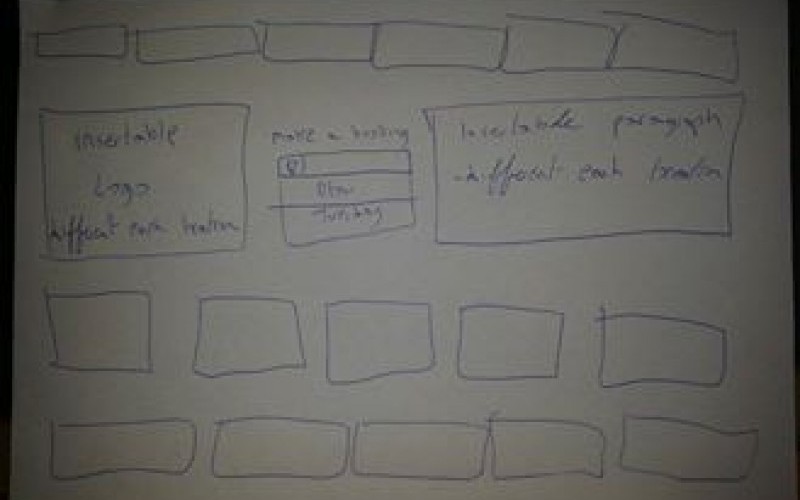 insertable
Logo
different each location
make a booking
insertable paragraph
different each location